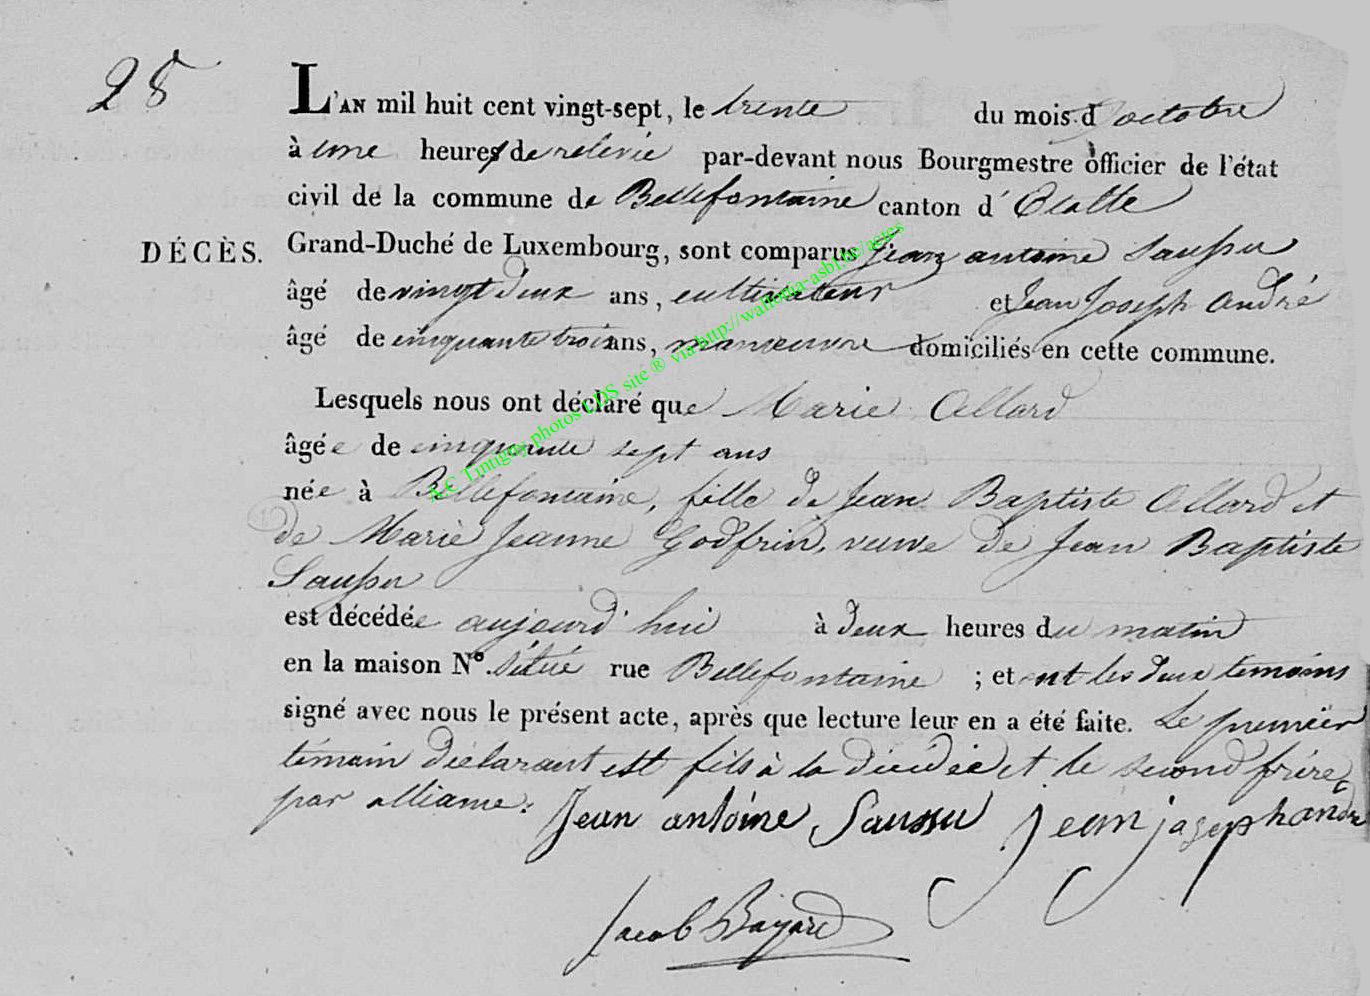 28
L'AN mil huit cent vingt-sept, le trente du mois d'octobre
à une heures de relevée par-devant nous Bourgmestre officier de l'état
civil de la commune de Bellefontaine canton d'Etalle
DÉCÈS.
Grand-Duché de Luxembourg, sont comparus Jean antoine Saussu
âgé de vingt deux ans, cultivateur et Jean Joseph André
âgé de cinquante trois ans, manœuvre domiciliés en cette commune.
Lesquels nous ont déclaré que Marie Allard
âgée de cinquante sept ans
née à Bellefontaine, fille de Jean Baptiste Allard et
de Marie Jeanne Godfrin, veuve de Jean Baptiste
Saussu
est décédée aujourd'hui à deux heures du matin
en la maison N° située rue Bellefontaine ; et ont les deux temoins
signé avec nous le présent acte, après que lecture leur en a été faite. Le premier
témoin déclarant est fils à la décédée et le second frère
par alliance.
Jean antoine Saussu Jean joseph andre
Jacob Bayard
A.C Tintigny photos LDS site ® via http://wallonia-asbl.be/actes